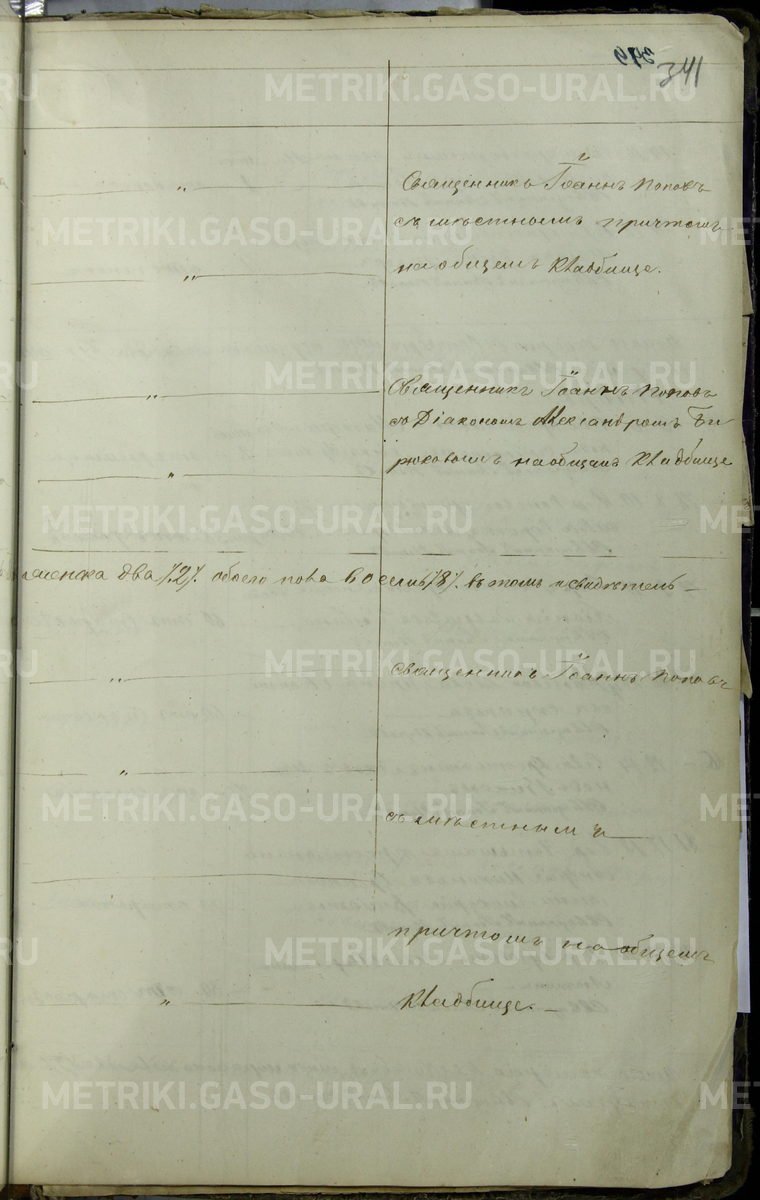 379
341
Священникъ Іоаннъ Поповъ
съ мѣстномъ причтомъ
на общемъ кладбище.
Священникъ Іоаннъ Поповъ
съ Діакономъ Александромъ Би
рюковымъ на общемъ кладбище
женска два /2/. обоего пола восемь /8/. въ томъ и свидѣтель-
Священникъ Іоаннъ Поповъ
съ мѣстнымъ
причтомъ на общемъ
кладбище.
METRIKI.GASO-URAL.RU